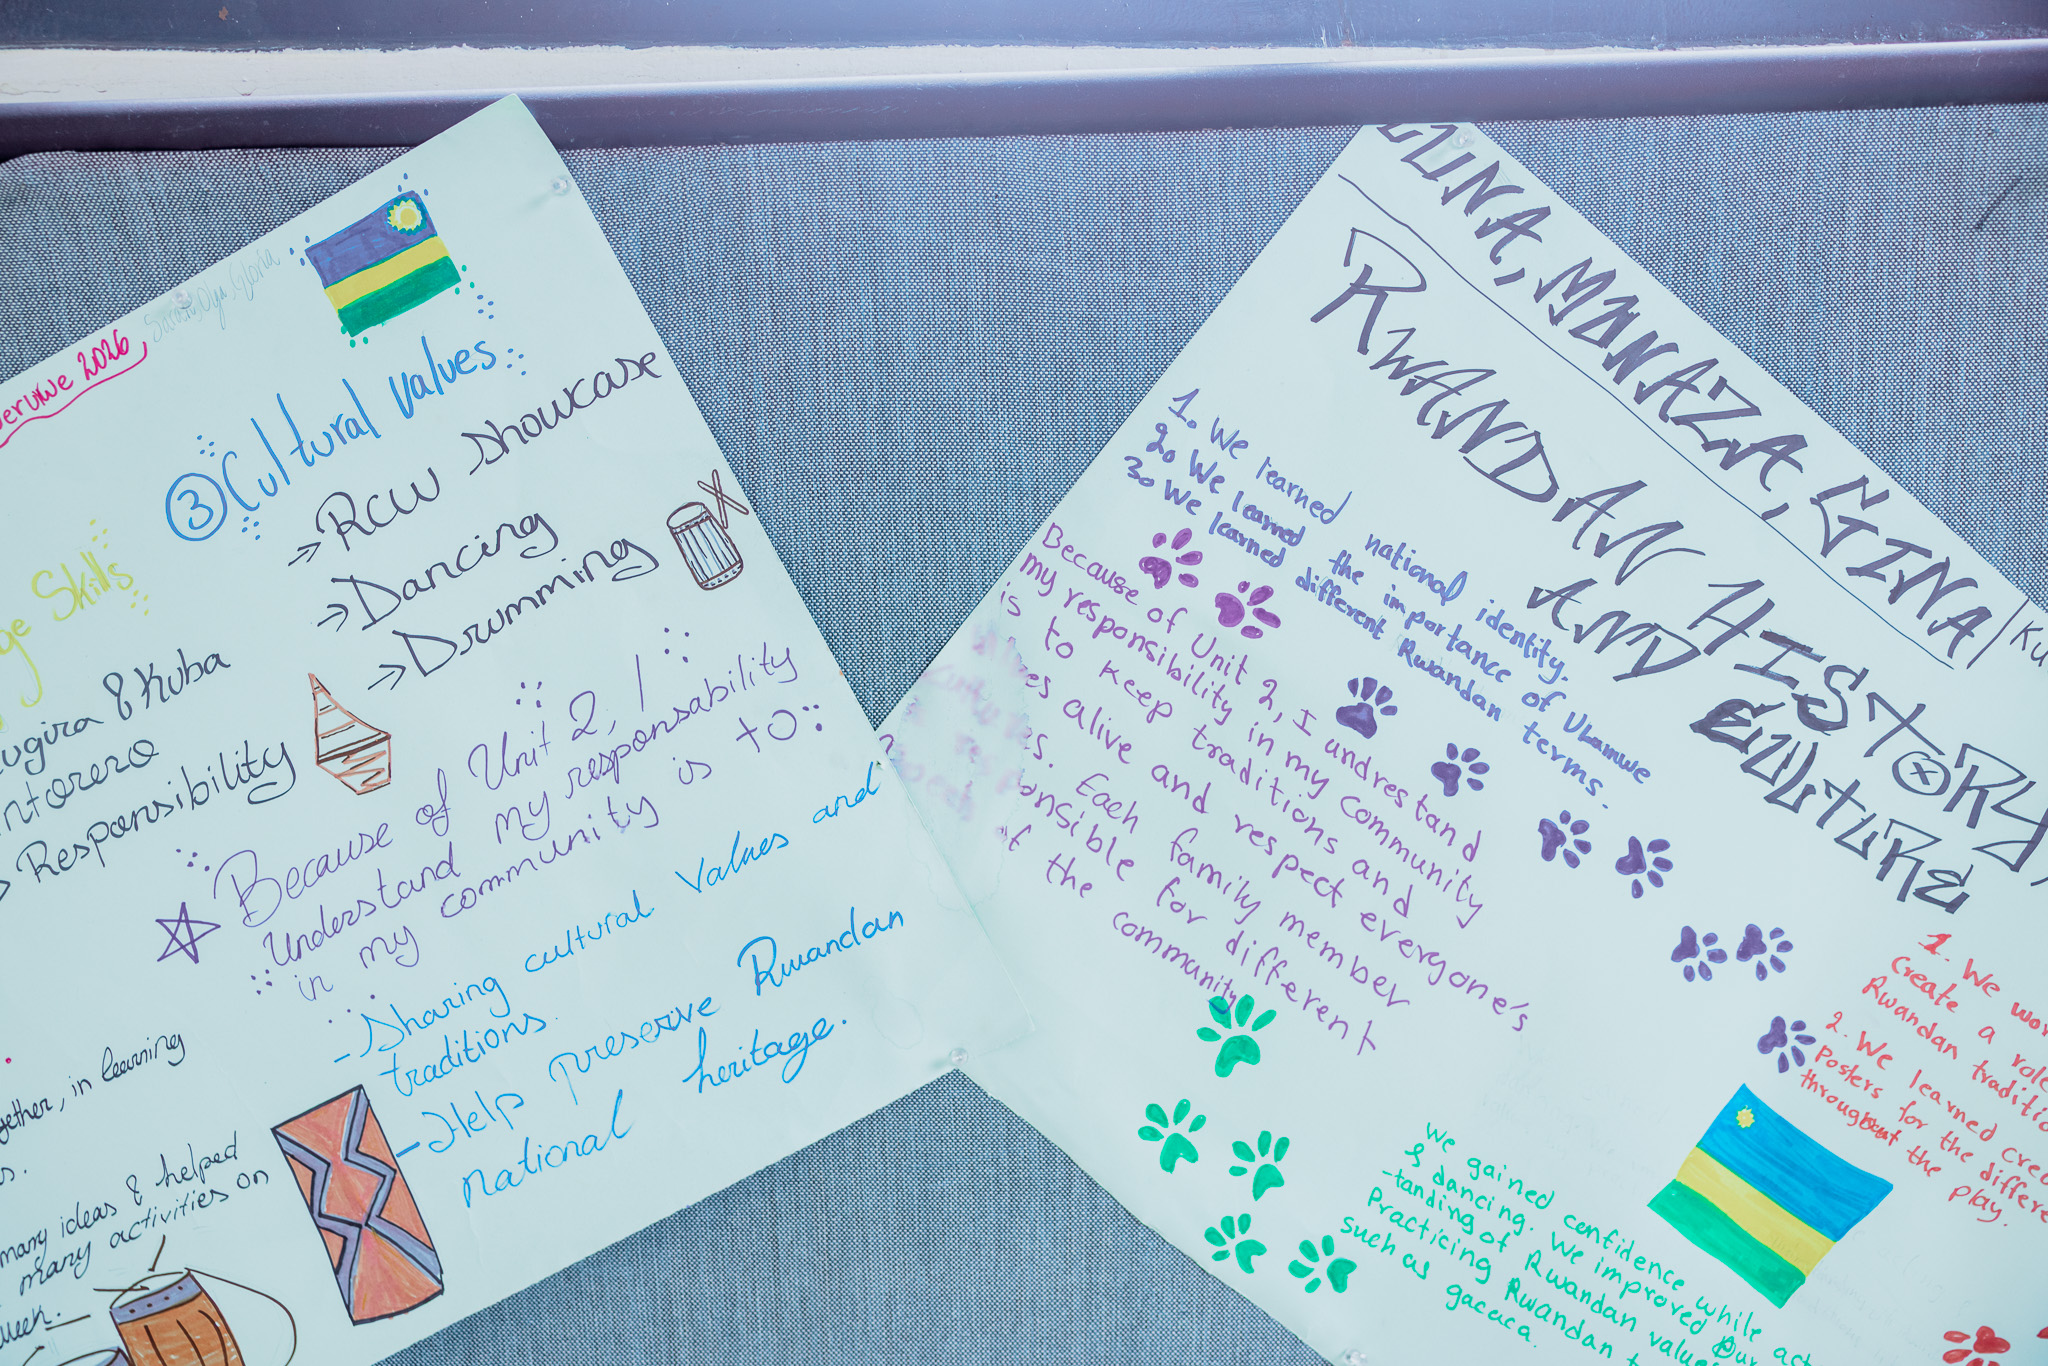 2026
Sarah, Olga, Gloria
③ Cultural values
→ RCW Showcase
→ Dancing
→ Drumming
Skills
& Kuba
Responsibility
Because of Unit 2, I
Understand my responsability
in my community is to:
- Sharing cultural values and
traditions.
- Help preserve Rwandan
national heritage.
in learning
many ideas & helped
many activities on
MUNAZA, GINA
RWANDAN HISTORY,
AND CULTURE
1. We learned national identity.
2. We learned the importance of Ubumwe
3. We learned different Rwandan terms.
Because of Unit 2, I undrestand
my responsibility in my community
is to keep traditions and
alive and respect everyone's
Each family member
for different
of the community
1. We
create a role
Rwandan
2. We learned
Posters for the
throughout the play.
We gained confidence while
& dancing. We improved our
-tanding of Rwandan
Practicing Rwandan
such as gacaca.